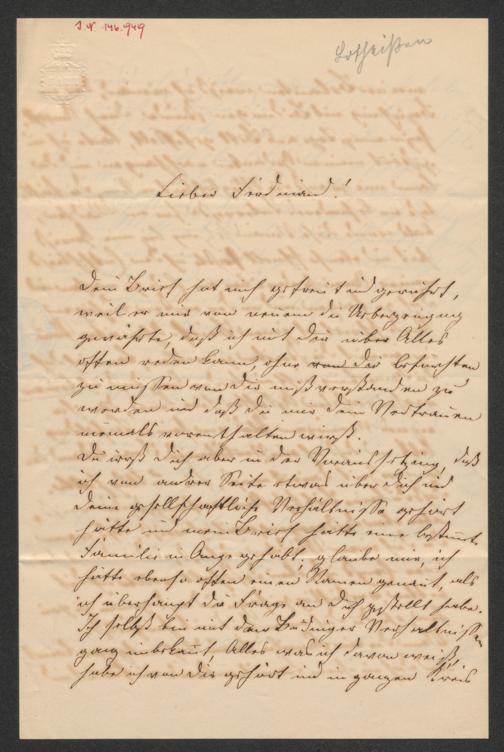 J.N. 146.949
Lotheißen
Lieber Ferdinand!
Dein Brief hat mich gefreut und gerührt,
weil er mir von neuem die Ueberzeugung
gewährte, daß ich mit dir über Alles
offen reden kann ohne von dir befürchten
zu müssen von dir mißverstanden zu
werden und daß du mir dein Vertrauen
niemals vorenthalten wirst.
Du irrst dich aber in der Voraussetzung, daß
ich von andrer Seite etwas über dich und
deine gesellschaftliche Verhältnisse gehört
hätte und mein Brief hätte eine bestimmte
Familie im Auge gehabt; glaube mir, ich
hätte ebenso offen einen Namen genannt, als
ich überhaupt die Frage an dich gestellt habe.
Ich selbst bin mit den Büdinger Verhältnissen
ganz unbekannt, Alles was ich davon weiß,
habe ich von dir gehört und im ganzen Kreis